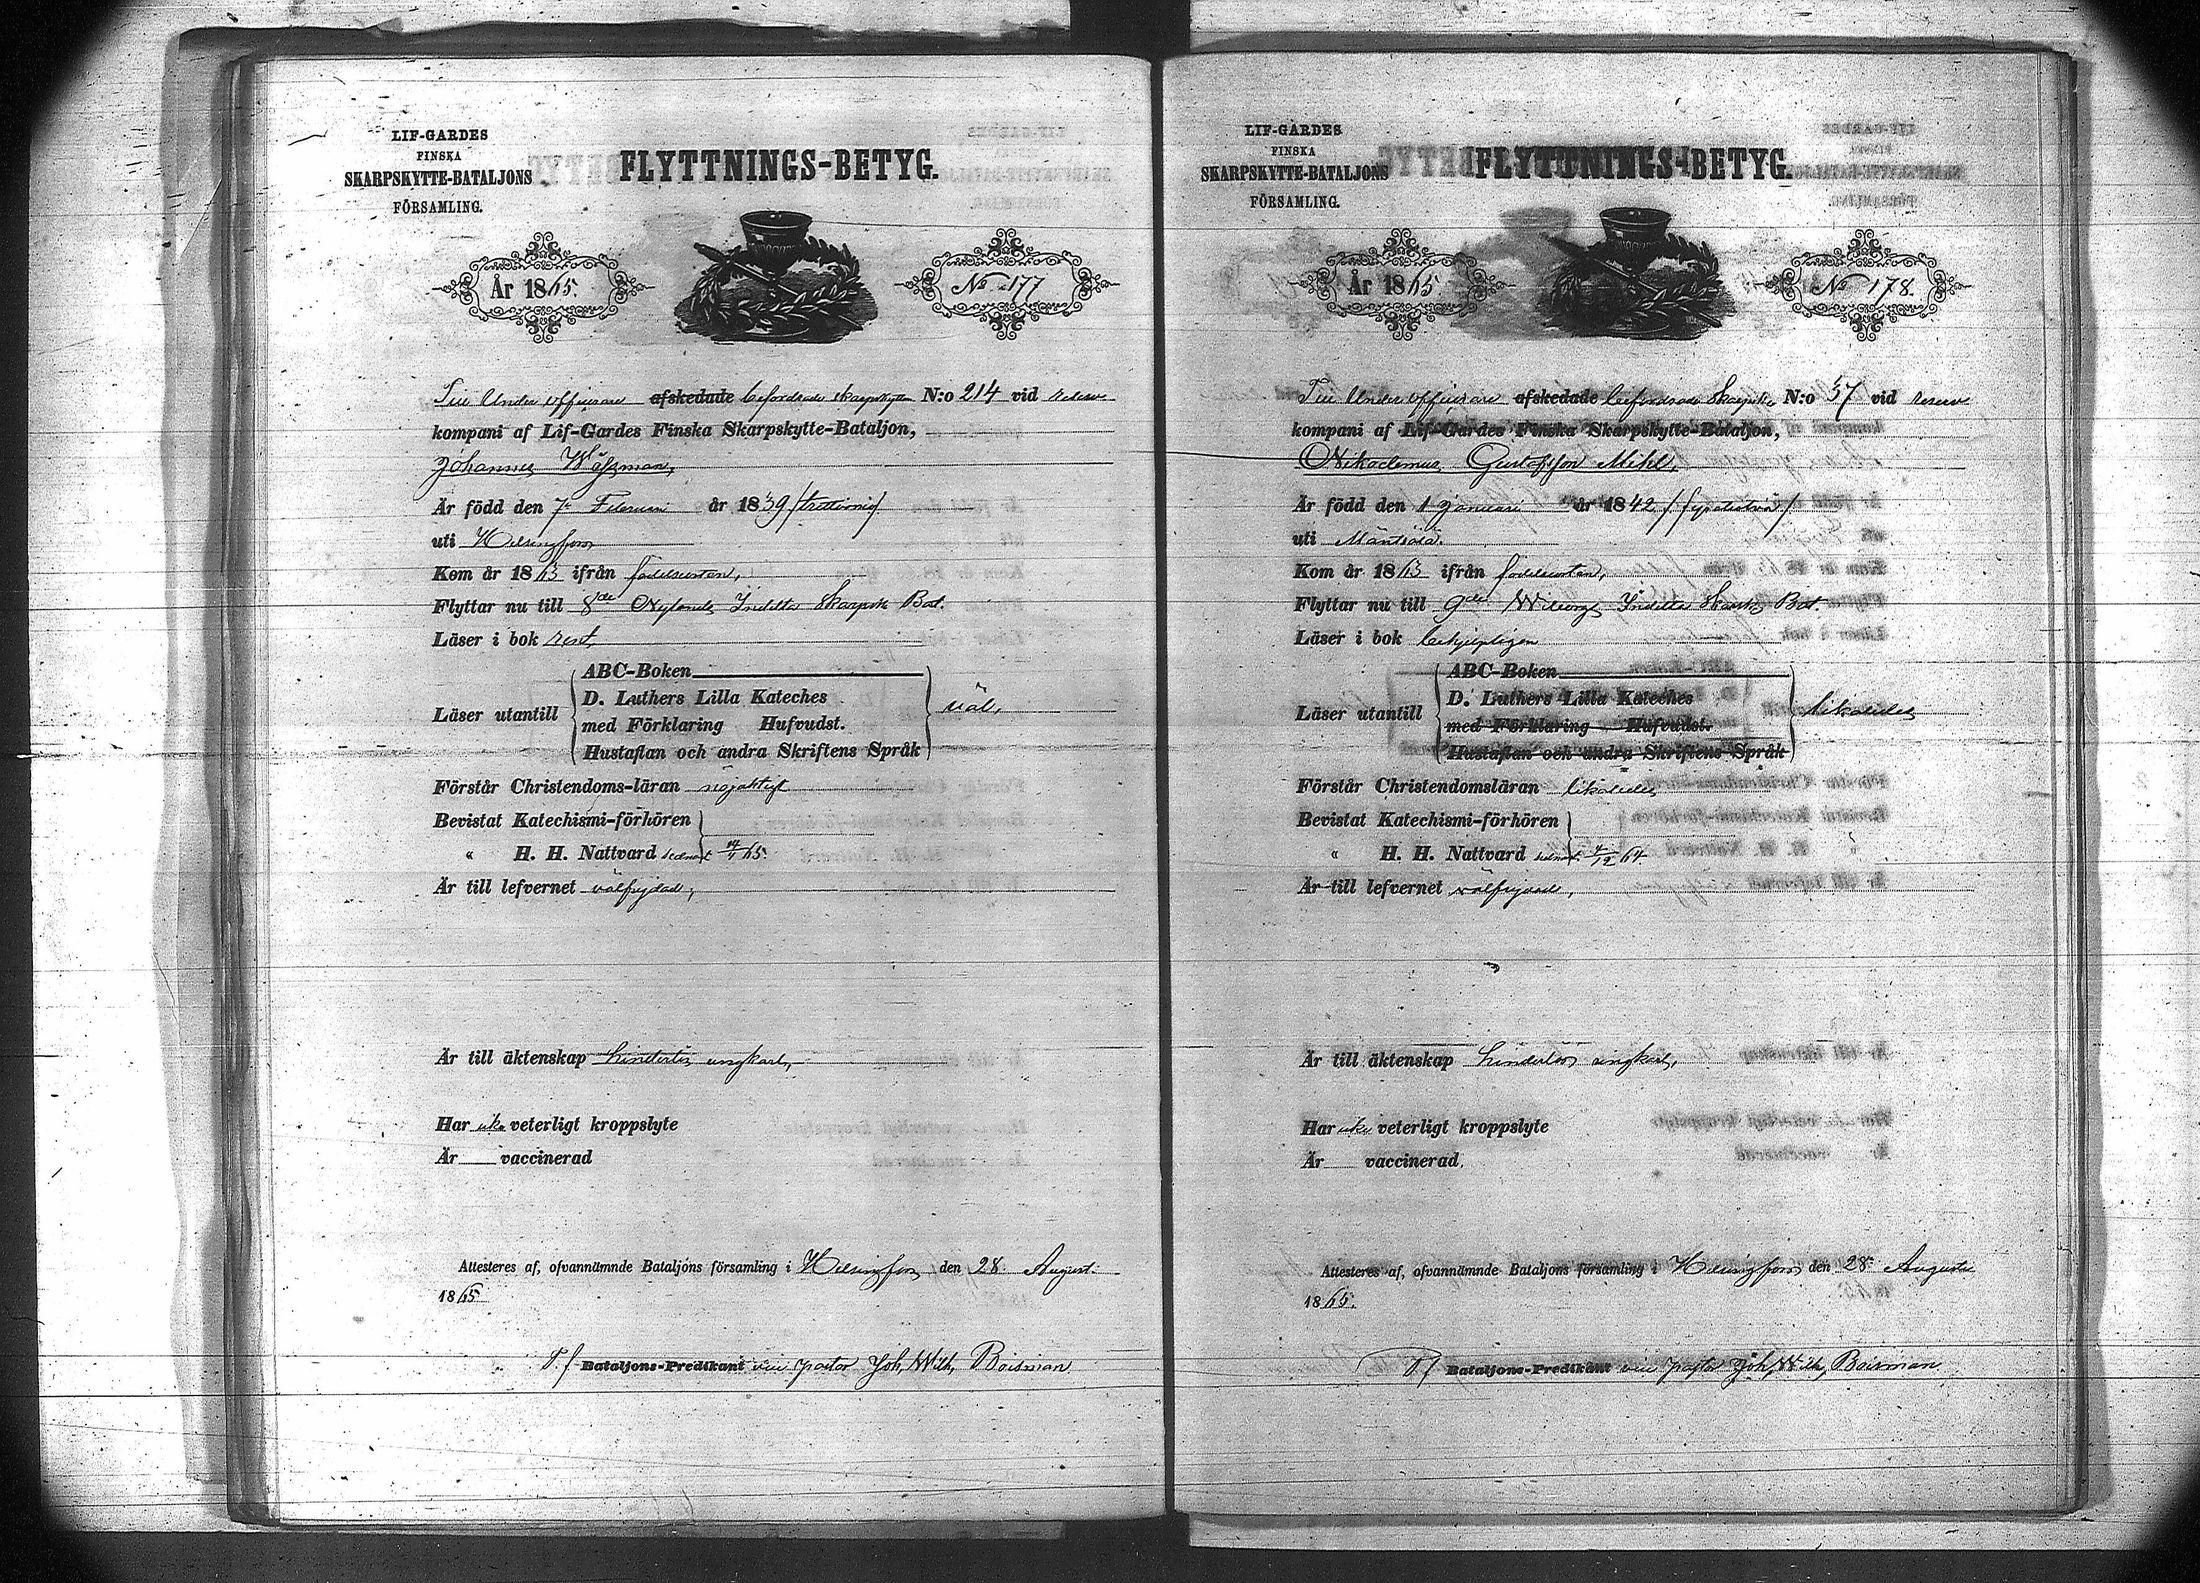 LIF-GARDES
FINSKA
SKARPSKYTTE-BATALJONS
FÖRSAMLING.
FLYTTNINGS-BETYG.
År 1865.
No 177
Till Under officerare afskedade befordrade skarpskytten N:o 214 vid reserv
kompani af Lif-Gardes Finska Skarpskytte-Bataljon,
Johannes
Är född den 7 Februari år 1839 /trettionio/
uti Helsingfors
Kom år 1863 ifrån födelseorten,
Flyttar nu till 8de Nylands Indelta Skarpsk Bat.
Läser i bok rent,
ABC-Boken
D. Luthers Lilla Kateches
Läser utantill
väl,
med Förklaring Hufvudst.
Hustaflan och andra Skriftens Språk
Förstår Christendoms-läran nöjaktigt
Bevistat Katechismi-förhören
" H. H. Nattvard sednast 65.
Är till lefvernet välfrejdad,
Är till äktenskap hinderlös ungkarl,
Har icke veterligt kroppslyte
Är vaccinerad
Attesteres af, ofvannämnde Bataljons församling i Helsingfors den 28 August.
1865
T. f. Bataljons-Predikant vice pastor Joh, Wilh, Boisman
LIF-GARDES
FINSKA
SKARPSKYTTE-BATALJONS
FÖRSAMLING.
FLYTTNINGS-BETYG.
År 1865
No 178.
Till Under officerare afskedade befordrade Skarpsk N:o 57 vid reserv
kompani af Lif-Gardes Finska Skarpskytte-Bataljon,
Nikodemus Gustafsson Mihl,
Är född den 1 Januari år 1842 /fyratiotvå/
uti Mäntsälä.
Kom år 1863 ifrån födelseorten,
Flyttar nu till 9de Wiborgs Indelta Skarpsk Bat.
Läser i bok behjelpligen
ABC-Boken
D. Luthers Lilla Kateches
Läser utantill
likaledes
med Förklaring Hufvudst.
Hustaflan och andra Skriftens Språk
Förstår Christendomsläran likaledes
Bevistat Katechismi-förhören
" H. H. Nattvard sednast 4/12 64
Är till lefvernet välfrejdad,
Är till äktenskap hinderlös ungkarl,
Har icke veterligt kroppslyte
Är vaccinerad,
Attesteres af, ofvannämnde Bataljons församling i Helsingfors den 28 Augusti
1865.
T f Bataljons-Predikant vice pastor Joh, Wilh, Boisman